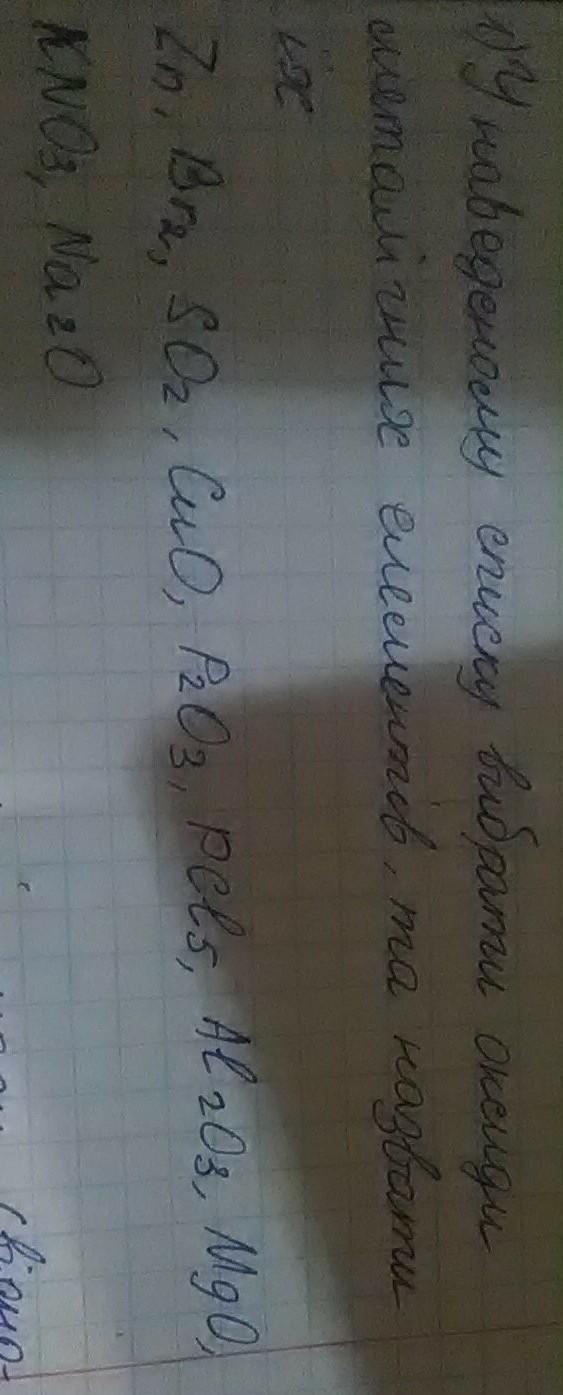 1) У наведеному списку вибрати оксиди
металічних елементів, та назвати
їх
Zn, Br₂, SO₂, CuO, P₂O₃, PCl₅, Al₂O₃, MgO,
KNO₃, Na₂O